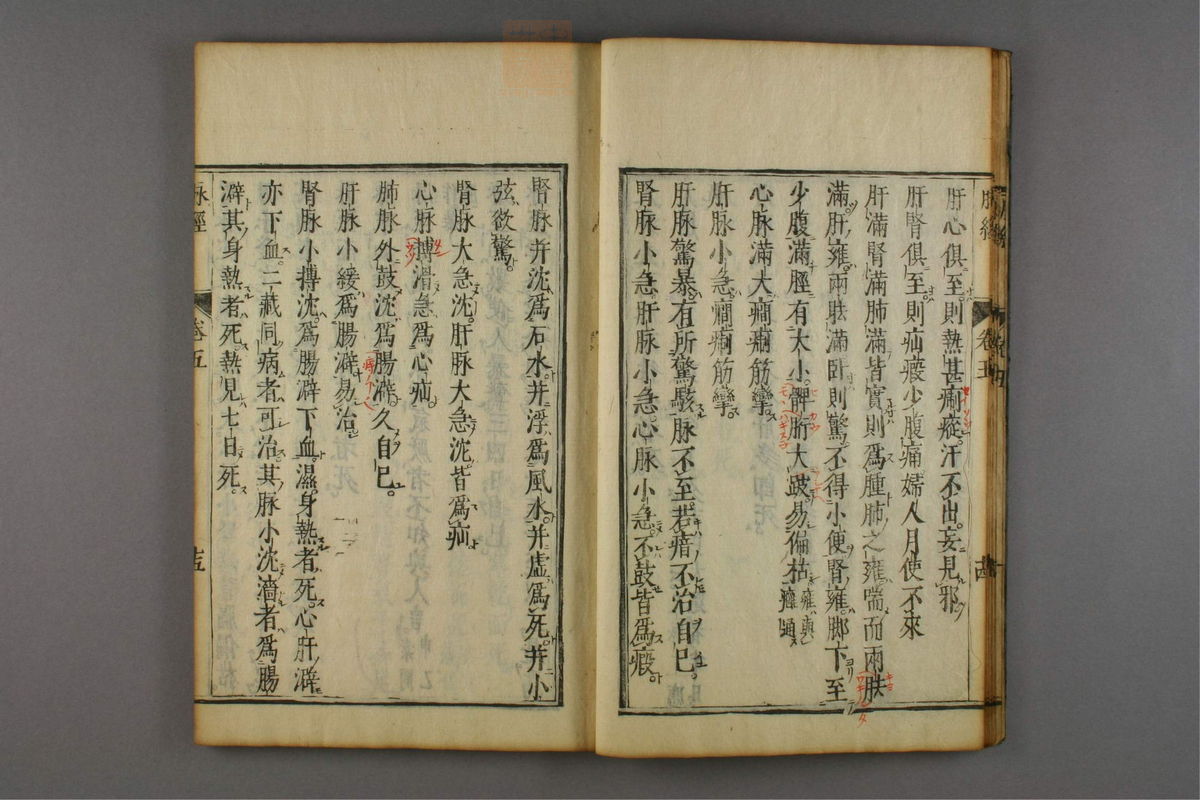 肝心俱至則熱甚瘛瘲汗不出妄見邪
肝腎俱至則疝瘕少腹痛婦人月使不來
肝滿腎滿肺滿皆實則爲腫肺之雍喘而兩胠
滿肝雍兩胠滿卧則驚不得小便腎雍脚下至
少腹滿脛有大小髀䯒大跛易偏枯雍與癰通
心脉滿大癎瘛筋攣
肝脉小急癎瘛筋攣
肝脉驚暴有所驚駭脉不至若瘖不治自已
腎脉小急肝脉小急心脉小急不鼓皆爲瘕
脉經
卷五
腎脉并沈爲石水并浮爲風水并虛爲死并小
弦欲驚
腎脉大急沈肝脉大急沈皆爲疝
心脉搏滑急爲心疝
肺脉外鼓沈爲腸澼久自已
肝脉小緩爲腸澼易治
腎脉小搏沈爲腸澼下血濕身熱者死心肝澼
亦下血二藏同病者可治其脉小沈濇者爲腸
澼其身熱者死熱見七日死
脉經
卷五